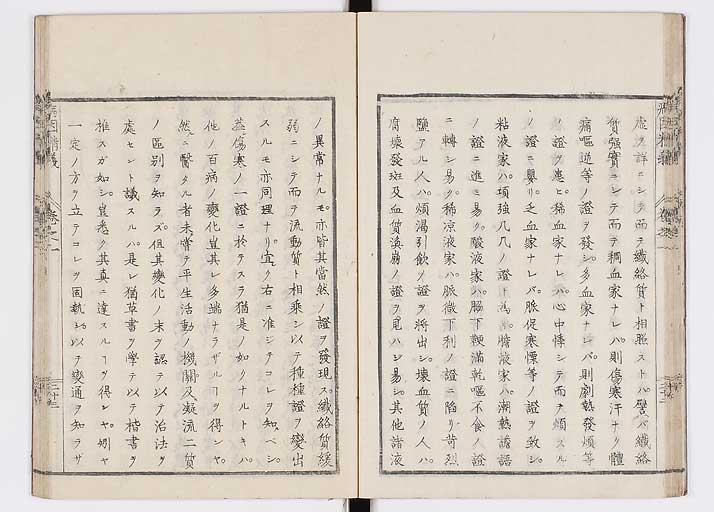 虚ヲ詳ニシテ而ヲ纖絡質ト相照ストハ譬バ纖絡
質强實ニシテ而テ稠血家ナレバ則傷寒汗ナク體
痛嘔逆等ノ證ヲ發シ多血家ナレバ則劇熱發煩等
ノ證ヲ患ヒ稀血家ナレバ心中悸シテ而テ煩スル
ノ證ニ嬰リ乏血家ナレバ脈促寒慄等ノ證ヲ致シ
粘液家ハ項强几几ノ證ト為リ膽液家ハ潮熱譫語
ノ證ニ進ミ易ク酸液家ハ脇下鞕滿乾嘔不食ノ證
ニ轉シ易ク稀凉液家ハ脈微下利ノ證ニ陷リ苛烈
鹽アル人ハ煩渴引飮ノ證ヲ將出シ壞血質ノ人ハ
腐壞發斑及血質渙崩ノ證ヲ見ハシ易シ其他諸液
ノ異常ナルモ亦皆其當然ノ證ヲ發現ス纖絡質緩
弱ニシテ而テ流動質ト相乘シ以テ種種證ヲ變出
スルモ亦同理ナリ宜ク右ニ准シテコレヲ知ベシ
葢傷寒ノ一證ニ於テスラ猶是ノ如クナルトキハ
他ノ百病ノ變化豈其レ多端ナラザルヿヲ得ンヤ
然ニ醫タル者未嘗テ平生活動ノ機關及凝流二質
ノ區別ヲ知ラズ但其變化ノ末ヲ認テ以テ治法ヲ
處セント議スルハ是レ猶草書ヲ學テ以テ楷書ヲ
推スガ如シ豈悉ク其真ニ達スルヿヲ得ンヤ矧ヤ
一定ノ方ヲ立テコレヲ固執シ以テ變通ヲ知ラザ